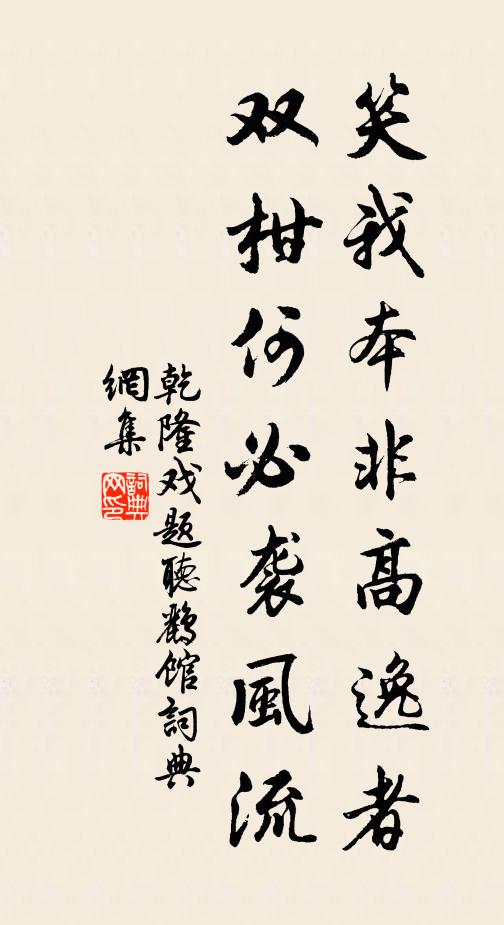 笑我本非高逸者
双柑何必袭風流
乾隆戏题聴鸝馆詞典
網集
詞典
网印